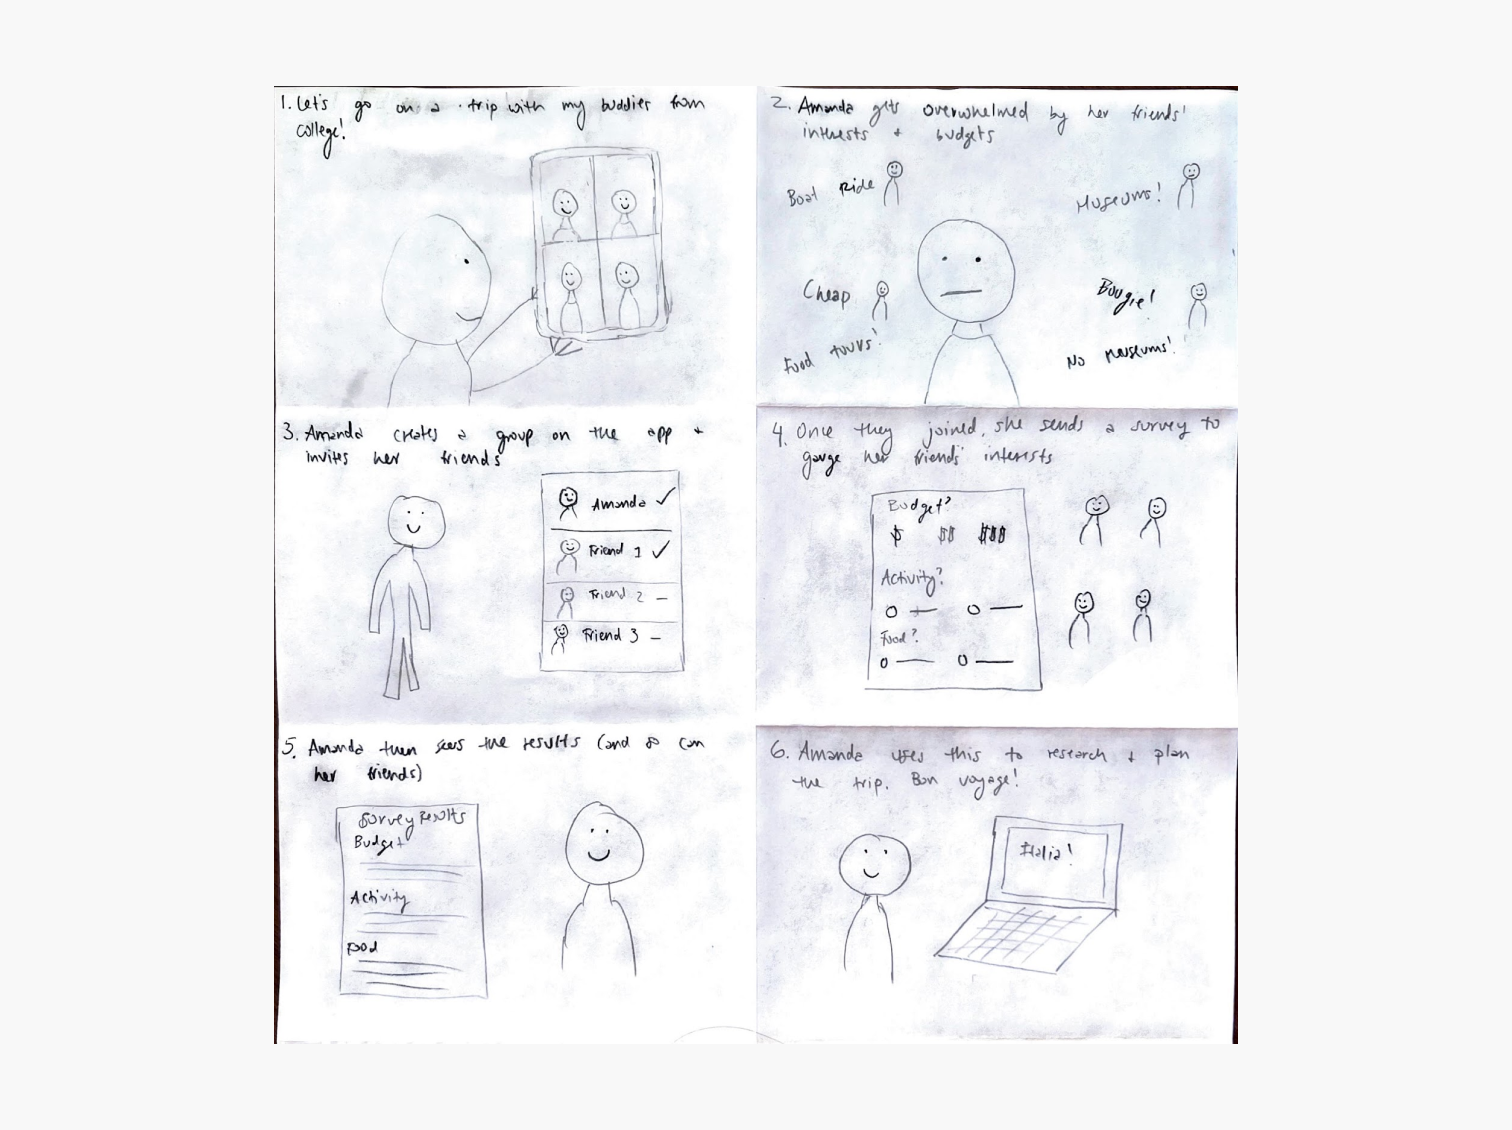 1. Let's go on a trip with my buddies from
college!
2. Amanda gets overwhelmed by her friends'
interests + budgets
Boat Ride
Museums!
Cheap
Bougie!
Food tours!
No Museums!
3. Amanda creates a group on the app +
invites her friends
Amanda ✓
Friend 1 ✓
Friend 2 –
Friend 3 –
4. Once they joined, she sends a survey to
gauge her friends' interests
Budget?
$ $$ $$$
Activity?
Food?
5. Amanda then sees the results (and so can
her friends)
Survey Results
Budget
Activity
Food
6. Amanda uses this to research + plan
the trip. Bon voyage!
Italia!